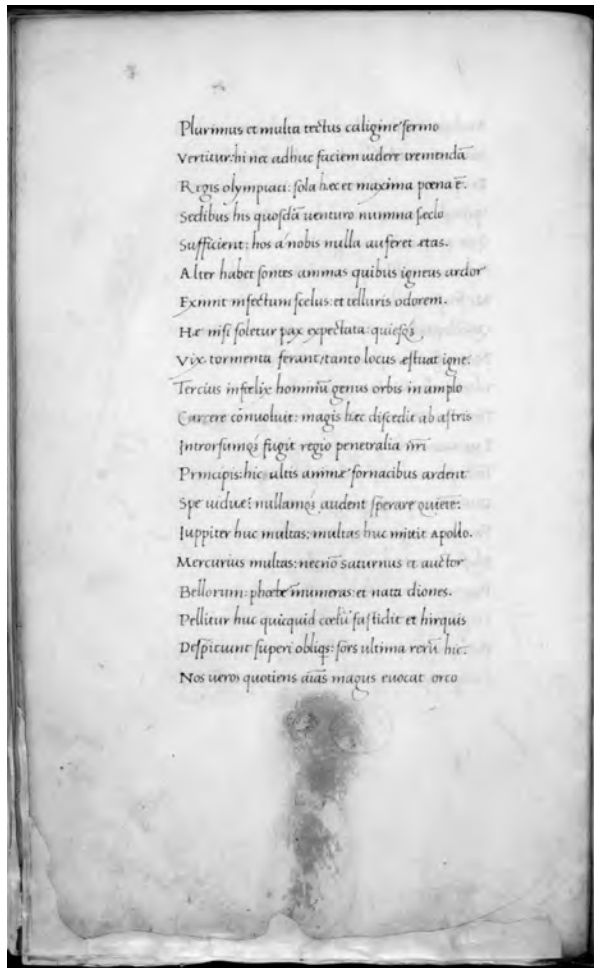 Plurimus et multa tectus caligine sermo
Vertitur: hi nec adhuc faciem uidere tremendā
Regis olympiaci: sola hæc et maxima pœna ē.
Sedibus his quosdā uenturo numina sæclo
Sufficient: hos a nobis nulla auferet ætas.
Alter habet fontes animas quibus igneus ardor
Eximit infectum scelus: et telluris odorem.
Hæ nisi soletur pax expectata: quiesqꝫ
Vix tormenta ferant, tanto locus æstuat igne.
Tercius infœlix hominū genus orbis in amplo
Carcere conuoluit: magis hæc discedit ab astris
Introrsumqꝫ fugit regio penetralia nr̄i
Principis: hic ultis animæ fornacibus ardent
Spe uiduæ: nullamqꝫ audent sperare quietē:
Iuppiter huc multas: multas huc mittit Apollo.
Mercurius multas: necnō saturnus et auctor
Bellorum: phœbe īnumeras: et nata diones.
Pellitur huc quicquid cœlū fastidit et hirquis
Despitiunt superi obliqs: sors ultima rerū hic.
Nos uero quotiens aīas magus euocat orco